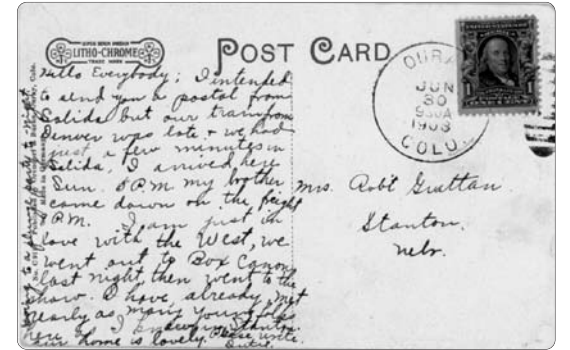 SUPER SEVEN PROCESS
LITHO-CHROME
TRADE MARK
POST CARD
DURA
JUN
30
930A
1908
COLO.
1
Hello Everybody; I intended
to send you a postal from
Salida but our train from
Denver was late & we had
just a few minutes in
Salida, I arrived here
Sun. 5 P.M. my brother
came down on the freight
8 P.M. I am just in
love with the West, we
went out to Box Canon
last night, then went to the
show. I have already met
nearly as many young folks
here as I knew in Stanton.
Our home is lovely. Please write.
Going to a dance party to-night
Mrs. Rob't Grattan.
Stanton.
Nebr.